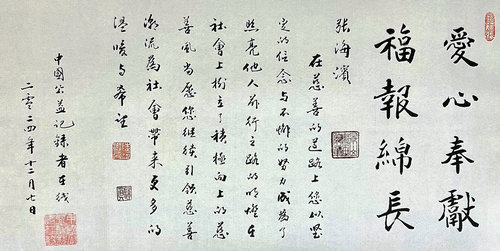 愛心奉獻
福報綿長
張海濱
在慈善的道路上您以堅
定的信念与不懈的努力成為了
照亮他人前行之路的明燈在
社會上樹立了積極向上的慈
善風尚愿您继续引领慈善
潮流為社會帶来更多的
温暖与希望
中國公益记錄者在线
二零二四年十二月七日